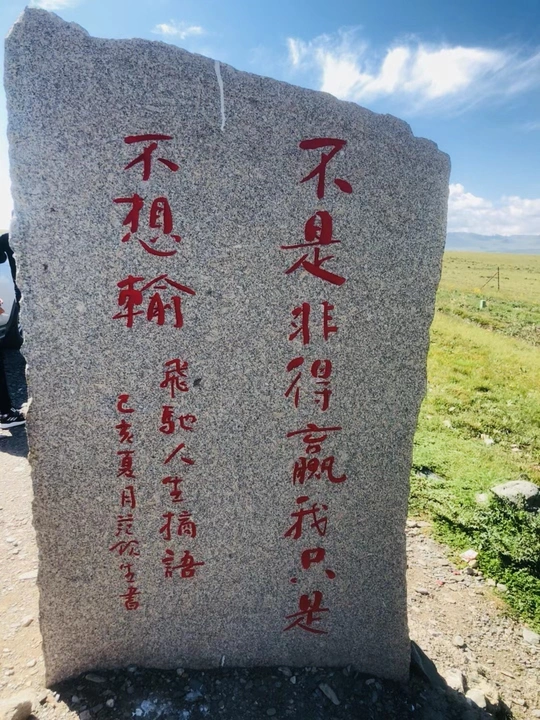 不是非得赢我只是
不想輸
飛馳人生摘語
己亥夏月范生書